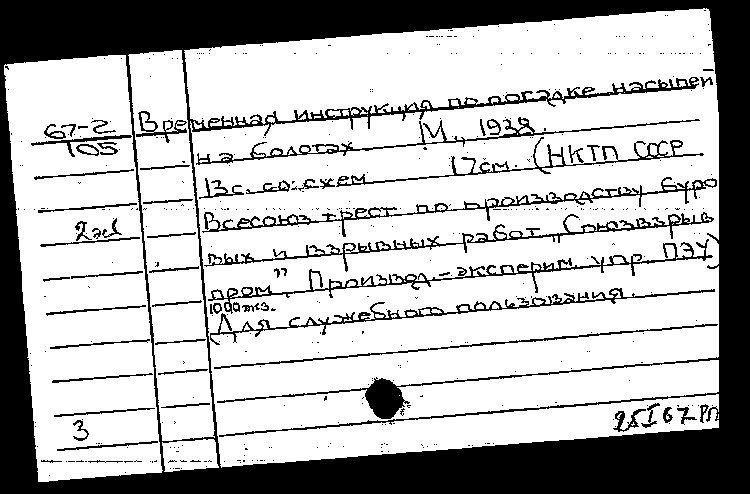 67-2 Временная инструкция по посадке насыпей
105 на болотах. М., 1938.
13 с. со схем 17 см. (НКТП СССР
2 экз Всесоюз трест по производству буро
вых и взрывных работ „Союзвзрыв
пром”. Производ.-эксперим. упр. ПЭУ)
1000 экз.
(Для служебного пользования.
3
25 I 67 РП